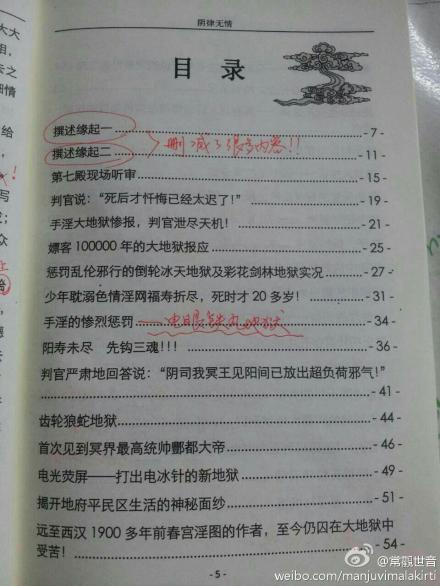 阴律无情
目 录
撰述缘起一 - 7 -
撰述缘起二 - 11 -
删减了很多内容!!
第七殿现场听审 - 15 -
判官说：“死后才忏悔已经太迟了！” - 19 -
手淫大地狱惨报，判官泄尽天机！ - 21 -
嫖客 100000 年的大地狱报应 - 25 -
惩罚乱伦邪行的倒轮冰天地狱及彩花剑林地狱实况 - 27 -
少年耽溺色情淫网福寿折尽，死时才 20 多岁！ - 31 -
手淫的惨烈惩罚 电眼铁丸地狱 - 34 -
阳寿未尽 先钩三魂！！！ - 36 -
判官严肃地回答说：“阴司我冥王见阳间已放出超负荷邪气！”
- 41 -
齿轮狼蛇地狱 - 44 -
首次见到冥界最高统帅酆都大帝 - 46 -
电光荧屏——打出电冰针的新地狱 - 49 -
揭开地府平民区生活的神秘面纱 - 51 -
远至西汉 1900 多年前春宫淫图的作者，至今仍囚在大地狱中
受苦！ - 54 -
- 5 -
大大
相，
去之
细情
给
写
众
@常觀世音
weibo.com/manjuvimalakirti